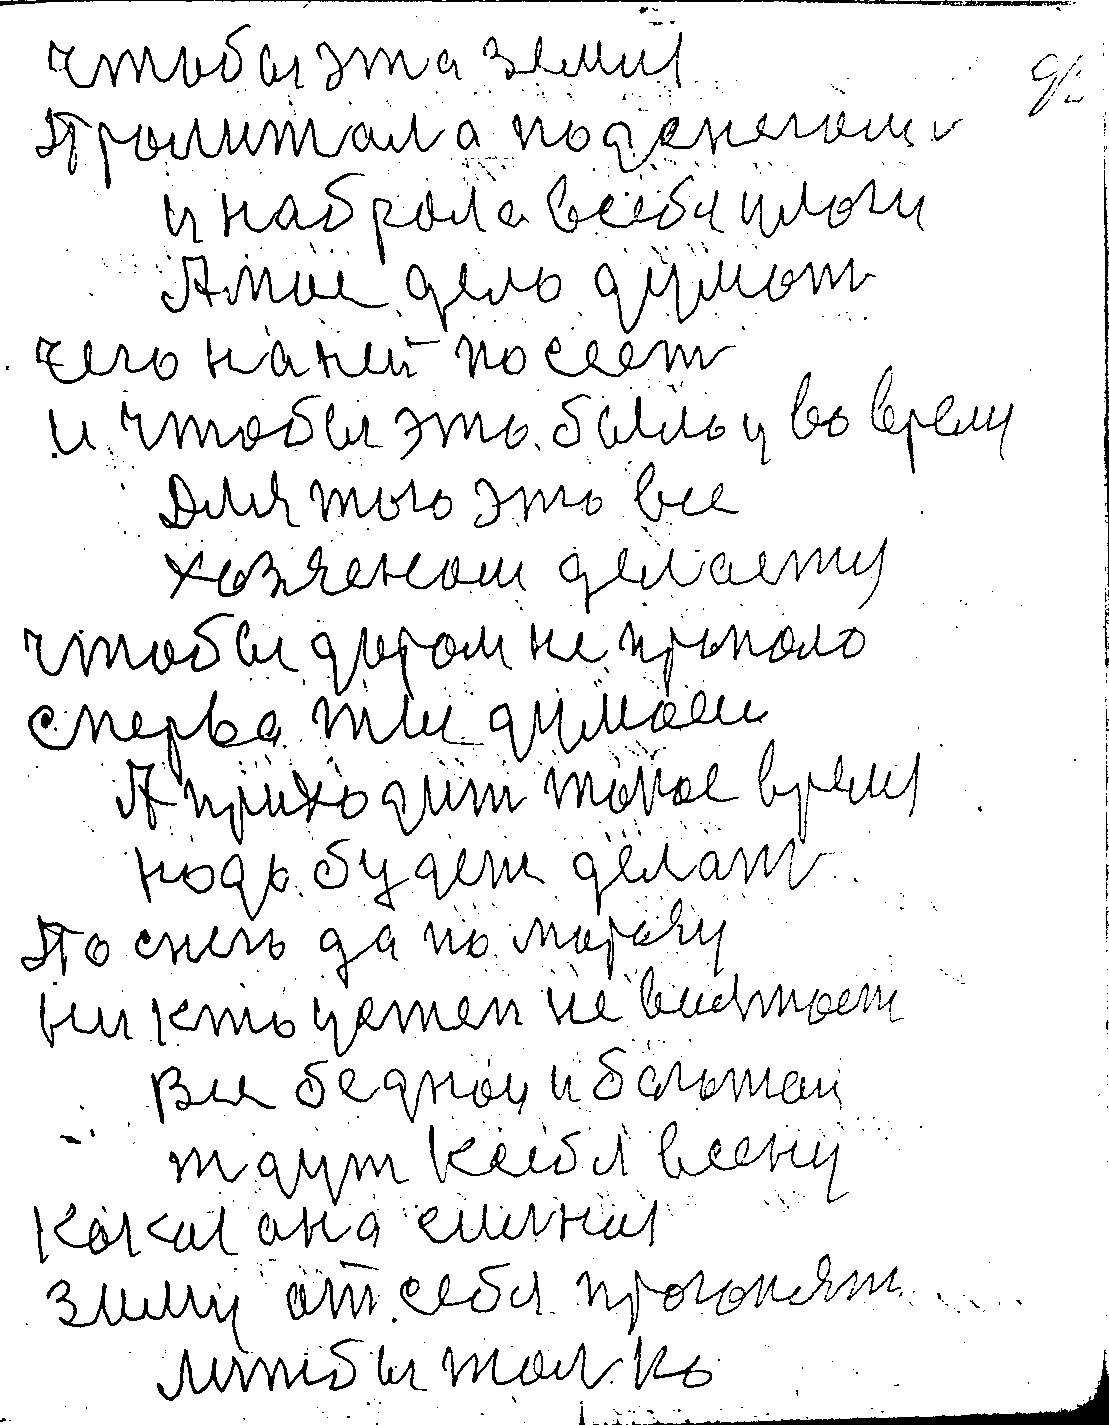 чтобы эта земия
Пролитала подснегоми
и набрала всебя илоги
А мое дело думат
чего на ней посеет
и чтобы это было и во время
Для того это все
хозяеном делаету
чтобы даром не пропало
сперва ты думаеш
А приходит такое время
надо будет делат
По снегу да по морозу
никто цетеп не
Все бедной и богатой
тдут ксебя весну
Какая она силная
зиму от себя прогонят
литобы толко